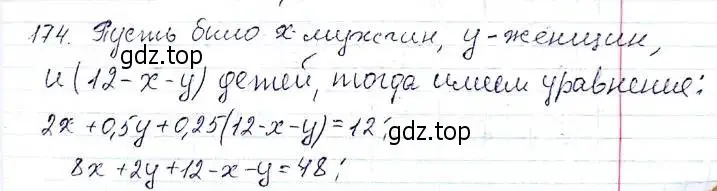 174. Пусть было x мужчин, y - женщин,
gdz.top
и (12-x-y) детей, тогда имеем уравнение:
2x+0,5y+0,25(12-x-y)=12;
gdz.top
8x+2y+12-x-y=48;